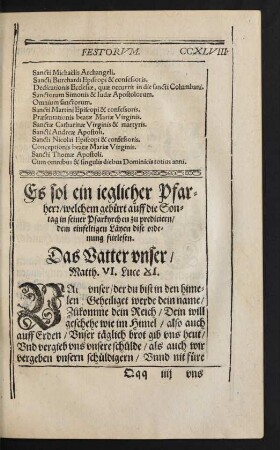 FESTORVM. CCXLVIII
Sancti Michaelis Archangeli.
Sancti Burchardi Episcopi & confessoris.
Dedicationis Ecclesiæ, quæ occurrit in die sancti Columbani.
Sanctorum Simonis & Iudæ Apostolorum.
Omnium sanctorum.
Sancti Martini Episcopi & confessoris.
Præsentationis beatæ Mariæ Virginis.
Sanctæ Catharinæ Virginis & martyris.
Sancti Andreæ Apostoli.
Sancti Nicolai Episcopi & confessoris.
Conceptionis beatæ Mariæ Virginis.
Sancti Thomæ Apostoli.
Cum omnibus & singulis diebus Dominicis totius anni.
Es sol ein ieglicher Pfar-
herr/welchem gebürt auff die Son-
tag in seiner Pfarkyrchen zu predigen/
dem einfeltigen Läyen dise orde-
nung fürlesen.
Das Vatter vnser/
Matth. VI. Luce XI.
VAtter vnser/der du bist in den himme-
len/Geheiliget werde dein name/
Zůkomme dein Reich/Dein will
geschehe wie im Himel/also auch
auff Erden/Vnser täglich brot gib vns heut/
Vnd vergib vns vnsere schulde/als auch wir
vergeben vnsern schüldigern/Vnnd nit füre
Qqq iiij vns